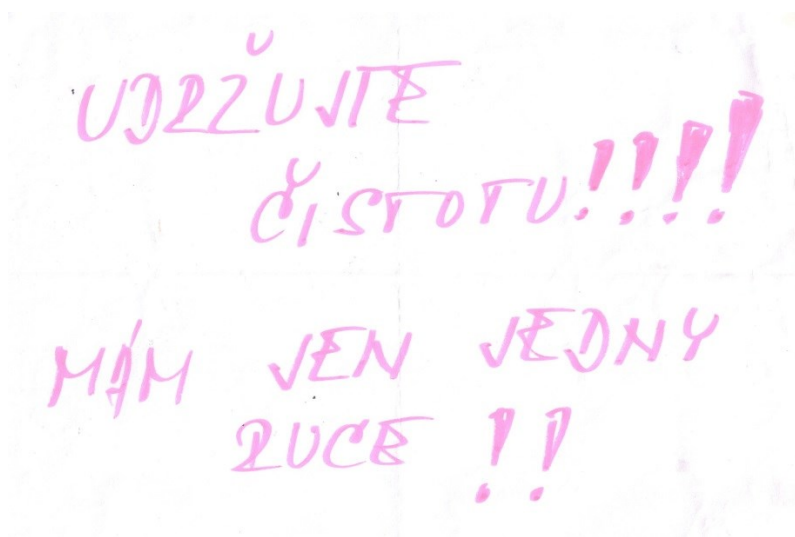 UDRŽUJTE
ČISTOTU!!!!
MÁM JEN JEDNY
RUCE !!